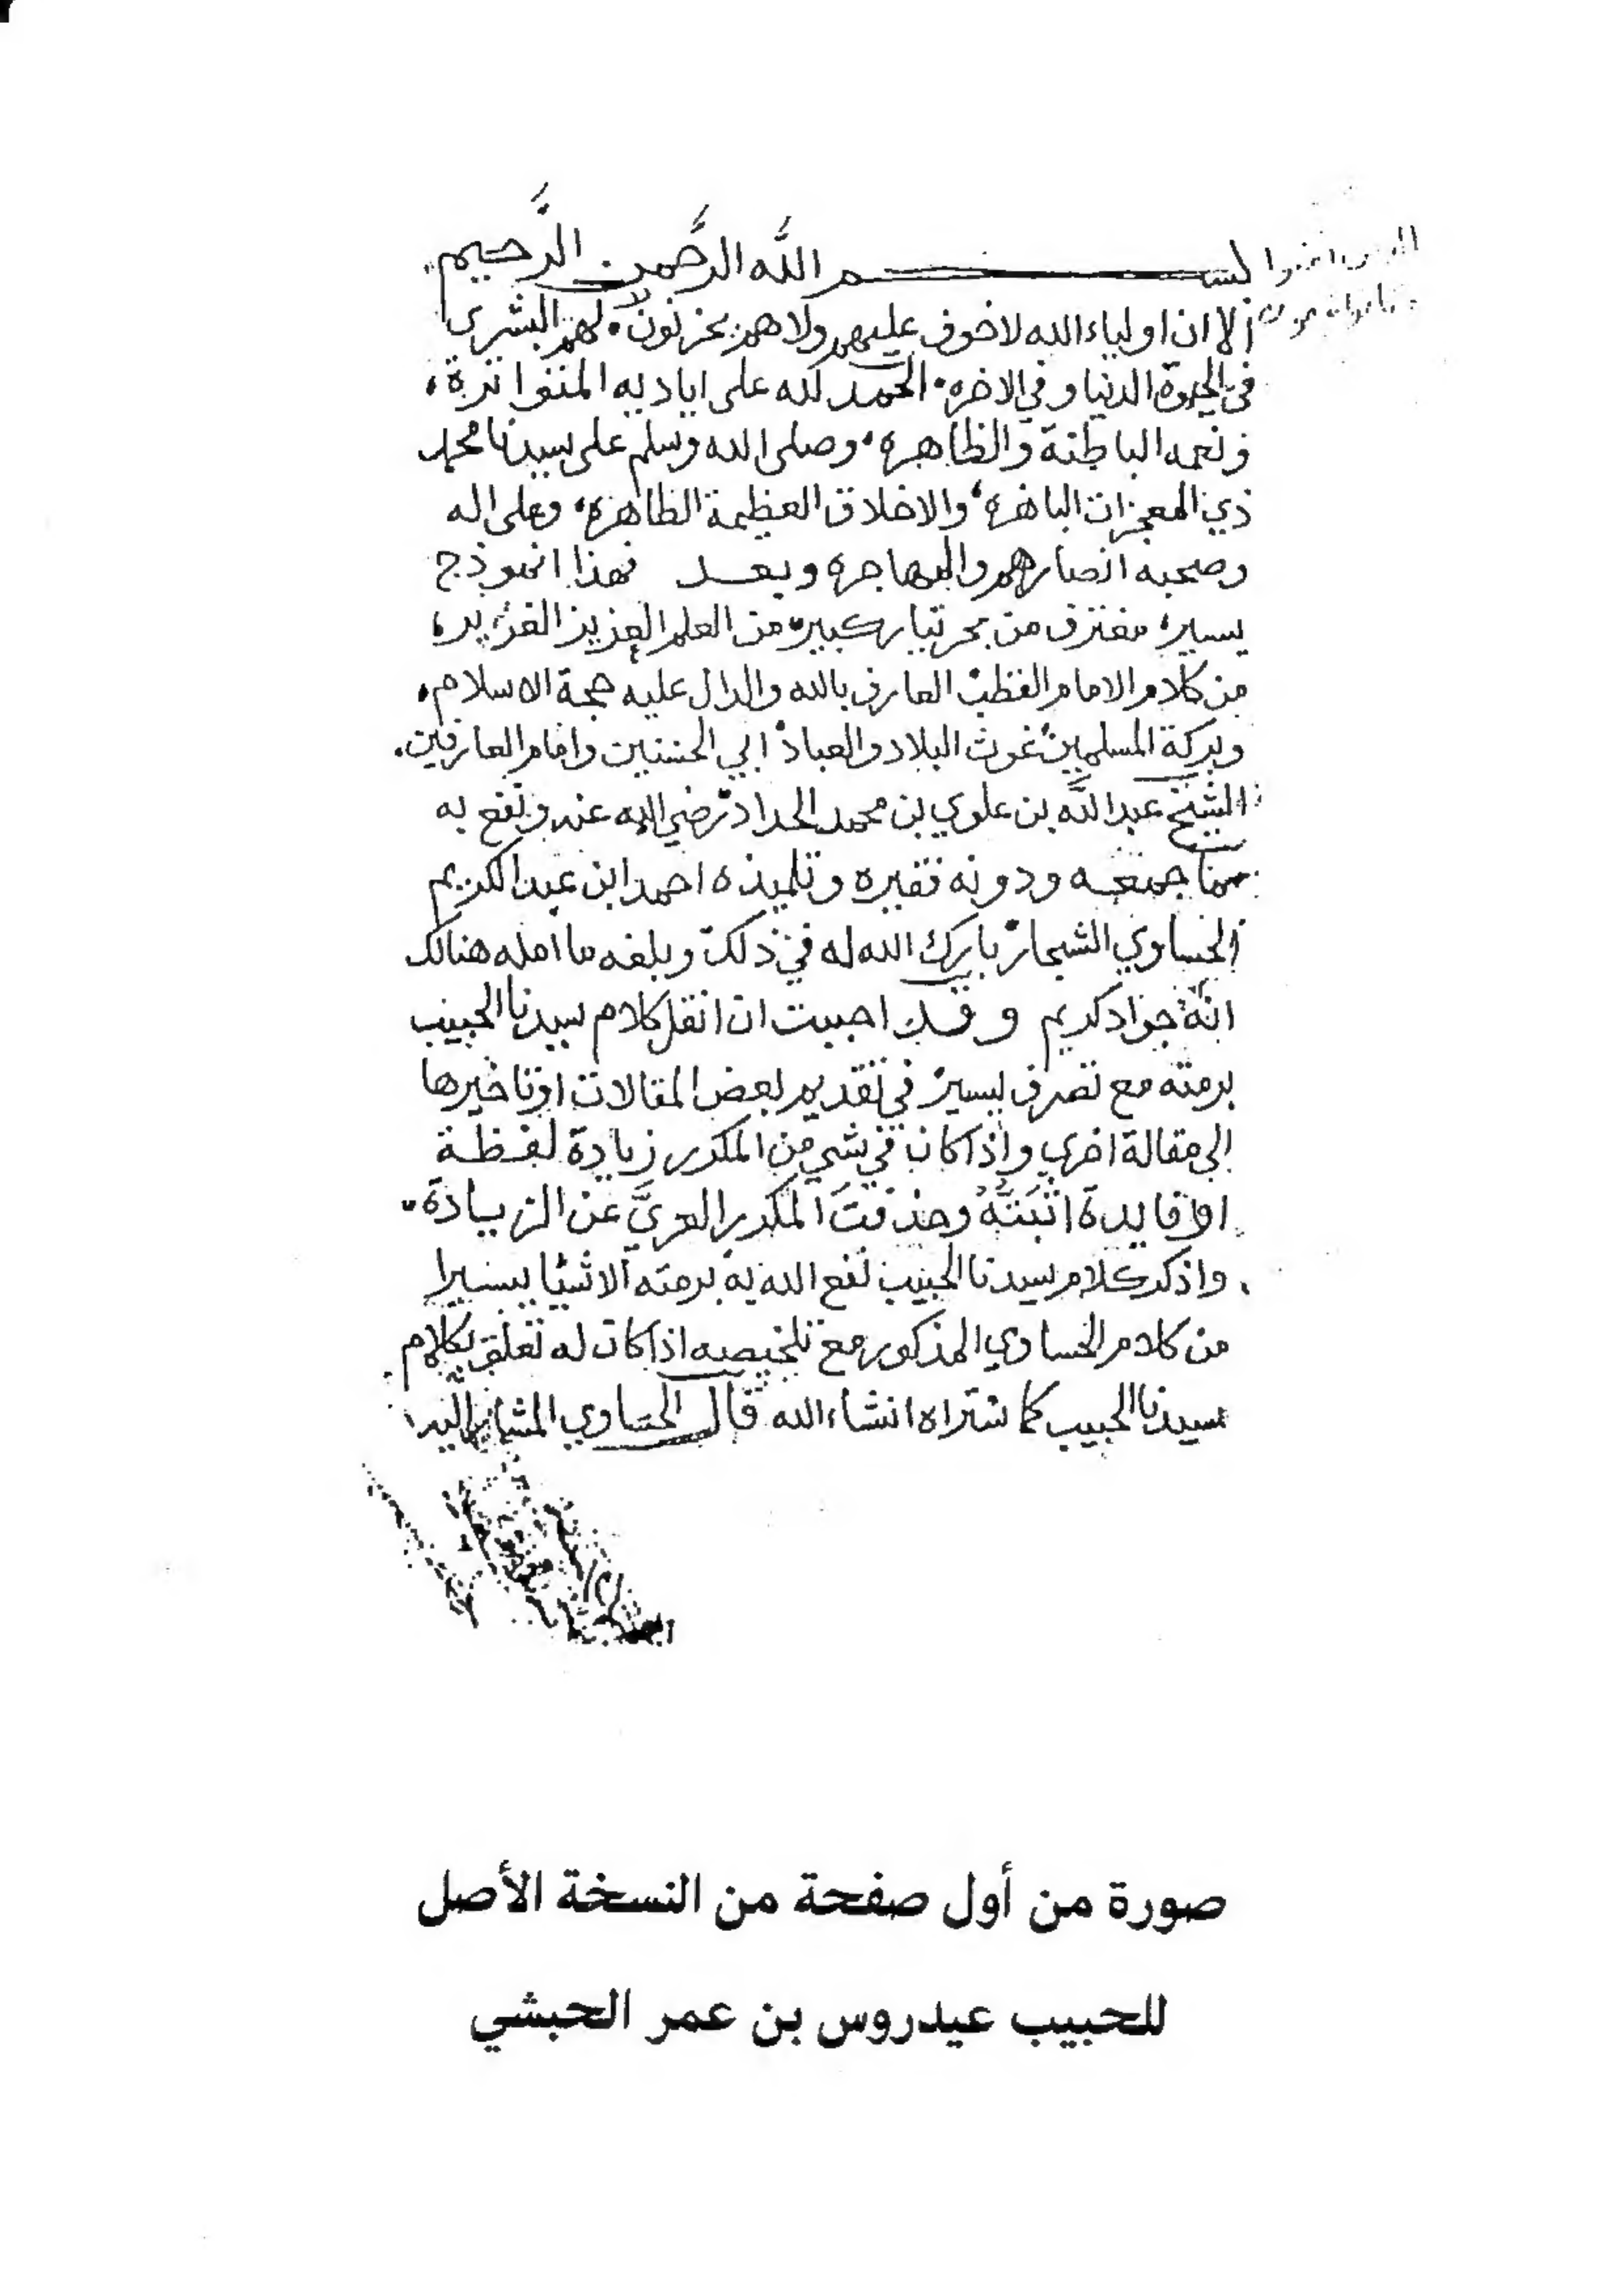 بسم الله الرحمن الرحيم
الا ان اولياء الله لا خوف عليهم ولا هم يحزنون لهم البشرى
في الحيوة الدنيا وفي الاخره الحمد لله على اياديه المتواترة،
ونعمه الباطنة والظاهره، وصلى الله وسلم على سيدنا محمد
ذي المعجزات الباهره، والاخلاق العظيمة الظاهره، وعلى اله
وصحبه انصارهم والمهاجره وبعد فهذا انموذج
يسير، مغترف من بحر تيار كبير، من العلم العزيز الغزير،
من كلام الامام القطب العارف بالله والدال عليه حجة الاسلام،
وبركة المسلمين غوث البلاد والعباد ابي الحسنين وامام العارفين.
الشيخ عبد الله بن علوي بن محمد الحداد رضي الله عنه ونفع به
مما جمعه ودونه فقيره وتلميذه احمد ابن عبد الكريم
الحساوي الشجار بارك الله له في ذلك وبلغه ما امله هنالك
انه جواد كريم وقد احببت ان انقل كلام سيدنا الحبيب
برمته مع تصرف يسير في تقديم بعض المقالات او تاخيرها
الى مقالة اخرى واذا كان في شي من المكرر زيادة لفظة
او فايدة اثبته وحذفت المكرر العري عن الزيادة.
واذكر كلام سيدنا الحبيب نفع الله به برمته الا شيئا يسيرا
من كلام الحساوي المذكور مع تلخيصه اذا كان له تعلق بكلام
سيدنا الحبيب كما ستراه انشاء الله قال الحساوي المشار اليه
صورة من أول صفحة من النسخة الأصل
للحبيب عيدروس بن عمر الحبشي